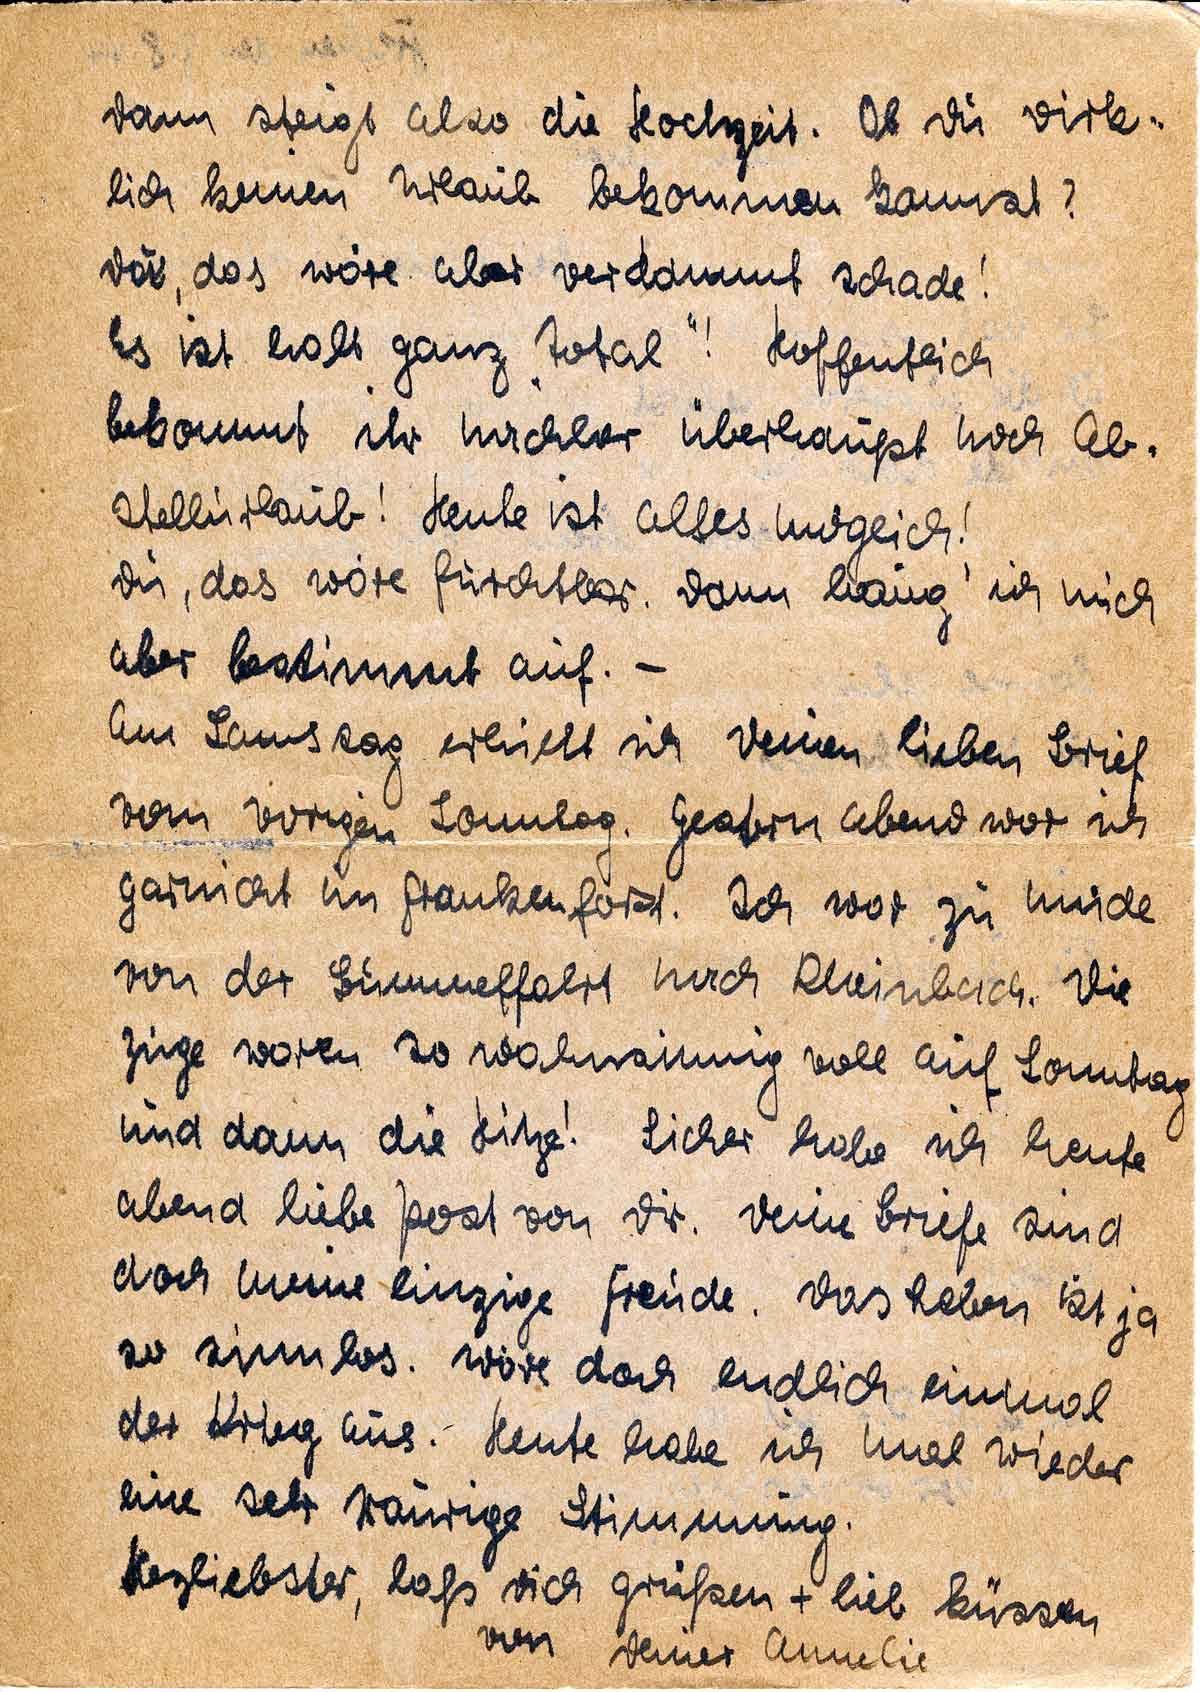 dann steigt also die Hochzeit. Ob Du wirk-
lich keinen Urlaub bekommen kannst?
Du, das wäre aber verdammt schade!
Es ist halt ganz „Total"! Hoffentlich
bekommt ihr nachher überhaupt noch Ab-
stellurlaub! Heute ist alles möglich!
Du, das wäre furchtbar. Dann häng' ich mich
aber bestimmt auf. –
Am Samstag erhielt ich Deinen lieben Brief
vom vorigen Sonntag. Gestern abend war ich
garnicht im Frankenforst. Ich war zu müde
von der Bummelfahrt nach Rheinbach. Die
Züge waren so wahnsinnig voll auf Sonntag
und dann die Hitze! Sicher habe ich heute
abend liebe Post von Dir. Deine Briefe sind
doch meine einzige Freude. Das Leben ist ja
so sinnlos. Wäre doch endlich einmal
der Krieg aus. – Heute habe ich mal wieder
eine sehr traurige Stimmung.
Herzliebster, laß Dich grüßen + lieb küssen
von Deiner Annelie